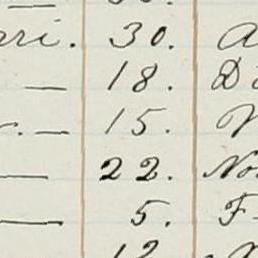 ari. 30. A
— 18. D
. — 15. N
— 22. No
— 5. F
12.